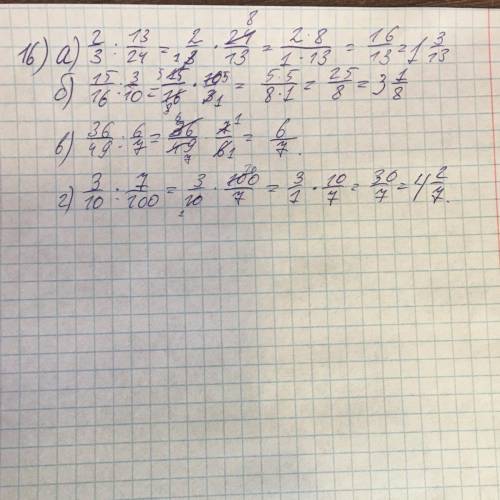 16) а) 2/3 : 13/24 = 2/3 · 24/13 = 2·8/1·13 = 16/13 = 1 3/13
б) 15/16 : 3/10 = 15/16 · 10/3 = 5·5/8·1 = 25/8 = 3 1/8
в) 36/49 : 6/7 = 36/49 · 7/6 = 6/7.
г) 3/10 : 7/100 = 3/10 · 100/7 = 3/1 · 10/7 = 30/7 = 4 2/7.